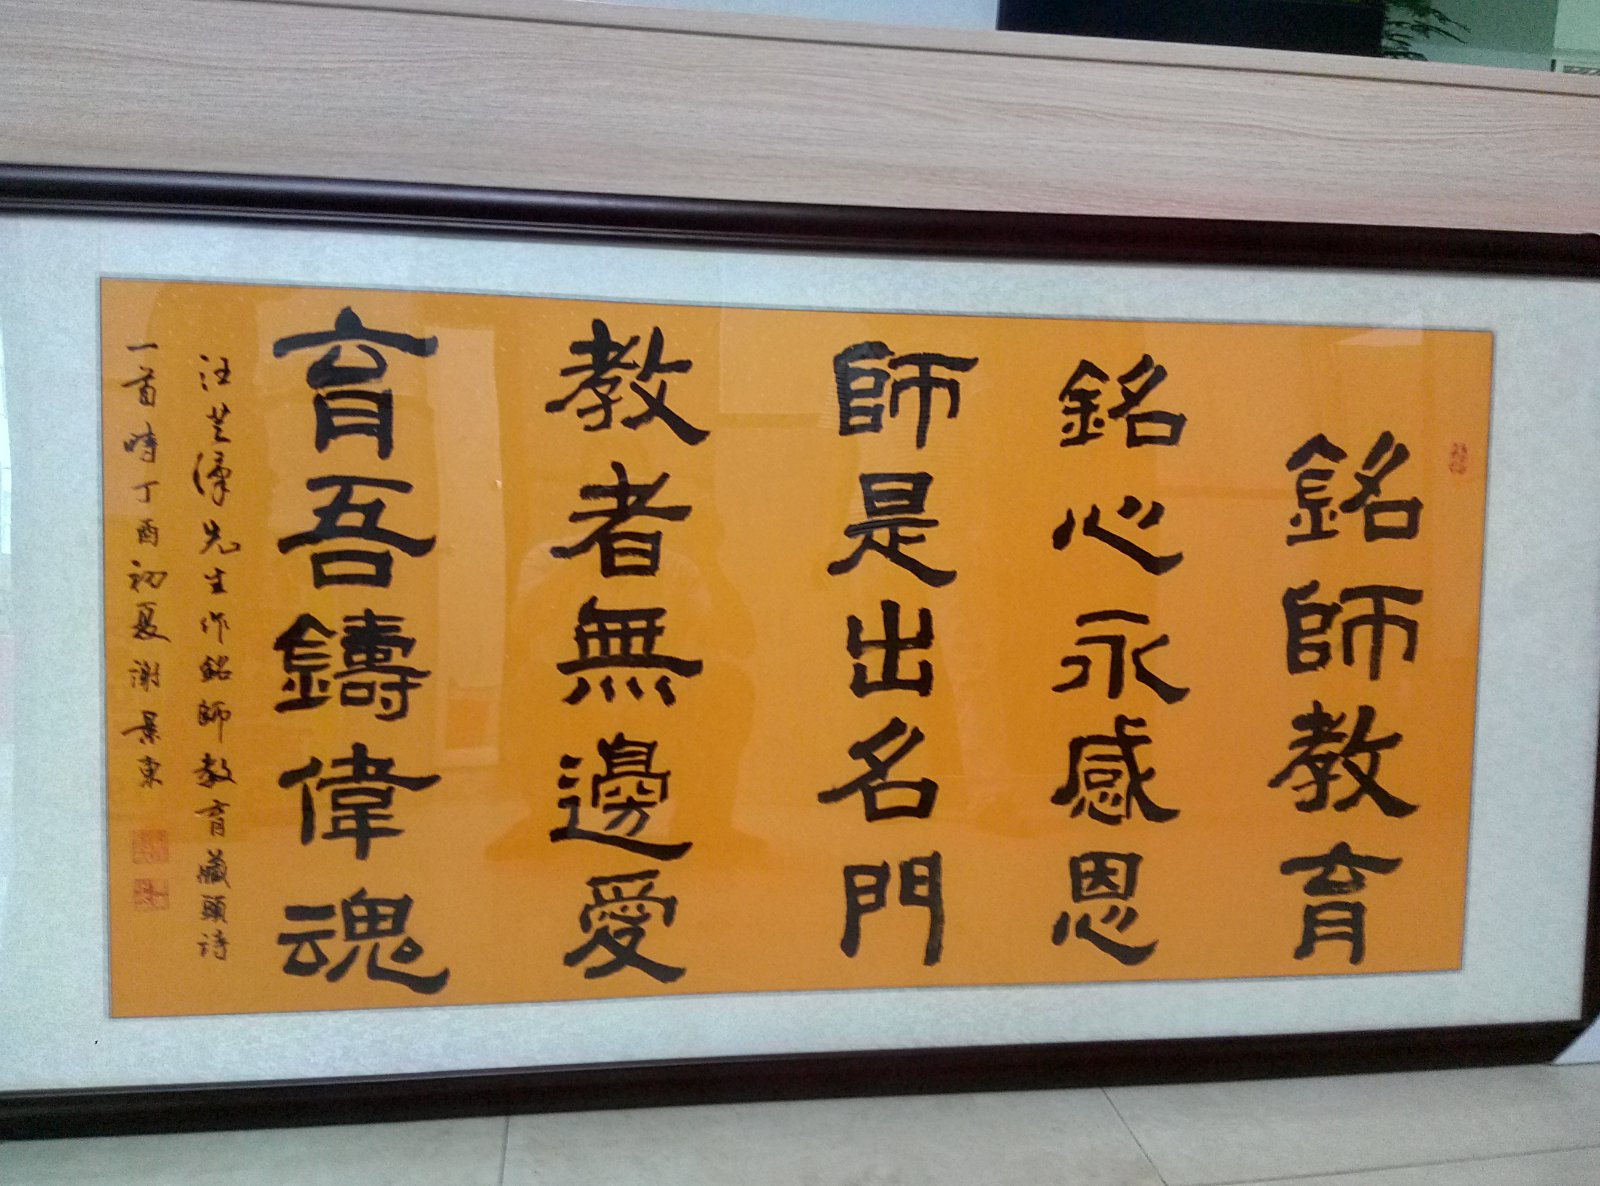 銘師教育
銘心永感恩
師是出名門
教者無邊愛
育吾鑄偉魂
汪芝澤先生作銘師教育藏頭詩
一首時丁酉初夏謝景東